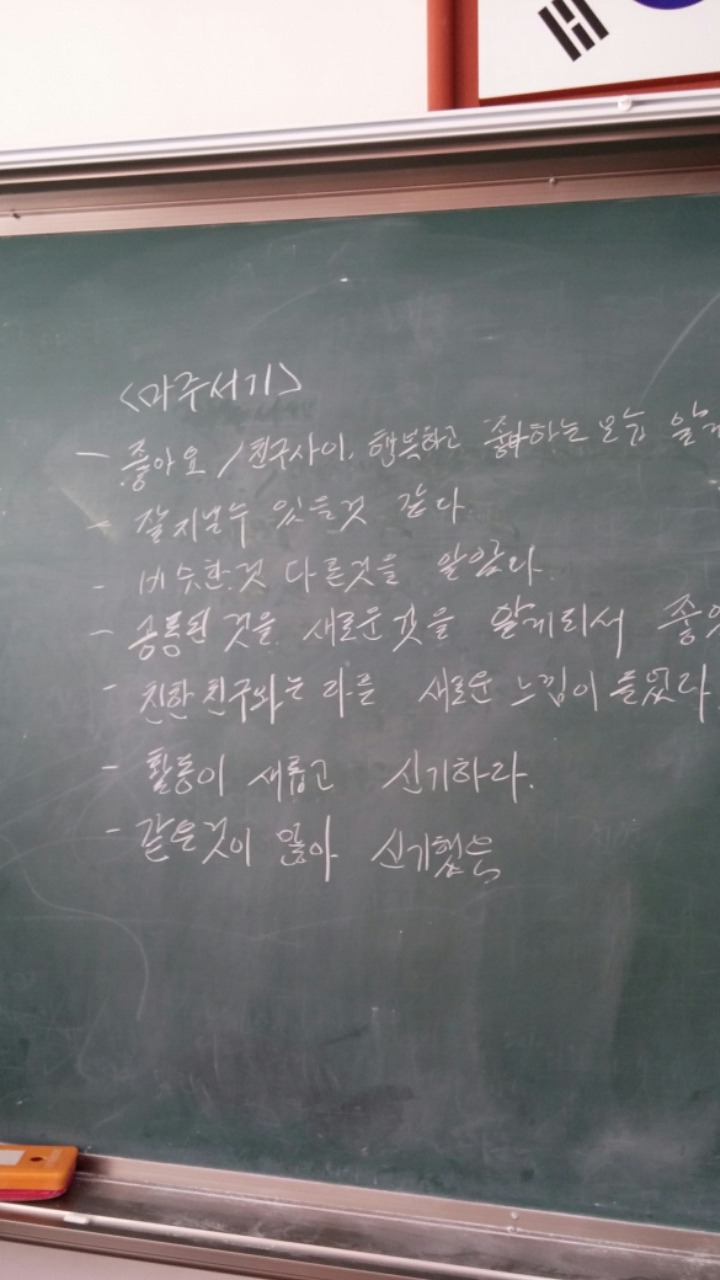 <마주서기>
- 좋아요 / 친구사이. 행복하고 좋아하는 모습 알게
- 잘지낼수 있을것 같다.
- 비슷한것 다른것을 알았다.
- 공통된 것을 새로운것을 알게되서 좋았
- 친한 친구와는 다른 새로운 느낌이 들었다
- 활동이 새롭고 신기하다.
- 같은것이 많아 신기했음